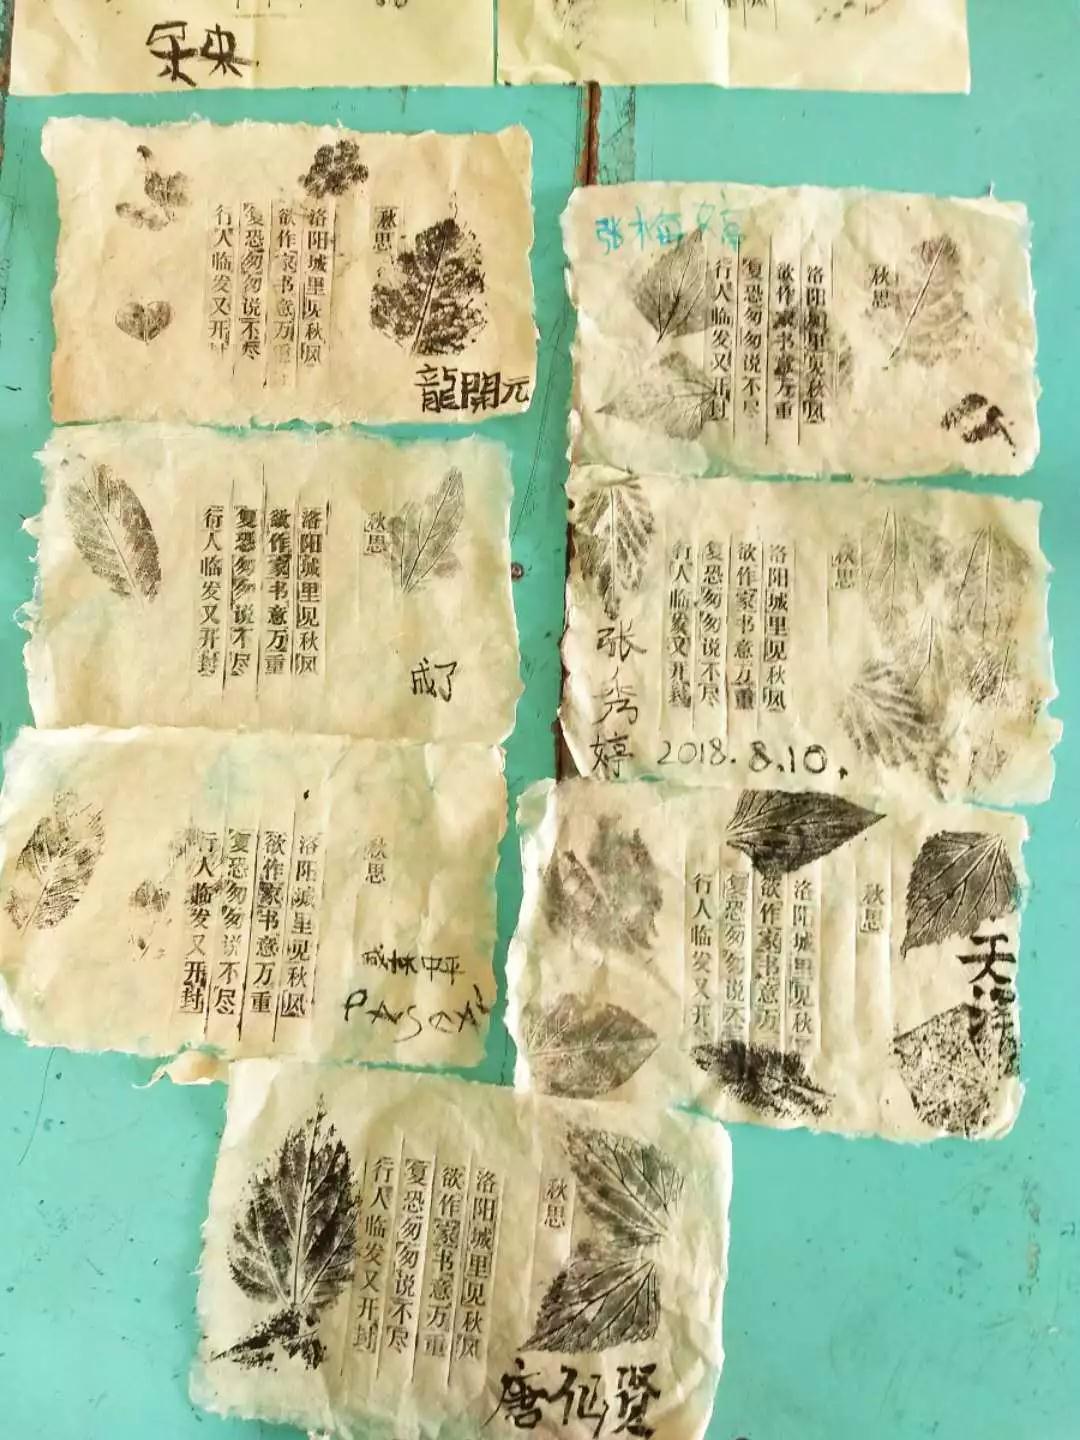 秋思
洛阳城里见秋风
欲作家书意万重
复恐匆匆说不尽
行人临发又开封
龍開元
张梅婷
秋思
洛阳城里见秋风
欲作家书意万重
复恐匆匆说不尽
行人临发又开封
秋思
洛阳城里见秋风
欲作家书意万重
复恐匆匆说不尽
行人临发又开封
成了
秋思
洛阳城里见秋风
欲作家书意万重
复恐匆匆说不尽
行人临发又开封
张秀婷
2018.8.10.
秋思
洛阳城里见秋风
欲作家书意万重
复恐匆匆说不尽
行人临发又开封
PASCAL
秋思
洛阳城里见秋
欲作家书意万
复恐匆匆说不
行人临发又开
天泽
秋思
洛阳城里见秋风
欲作家书意万重
复恐匆匆说不尽
行人临发又开封